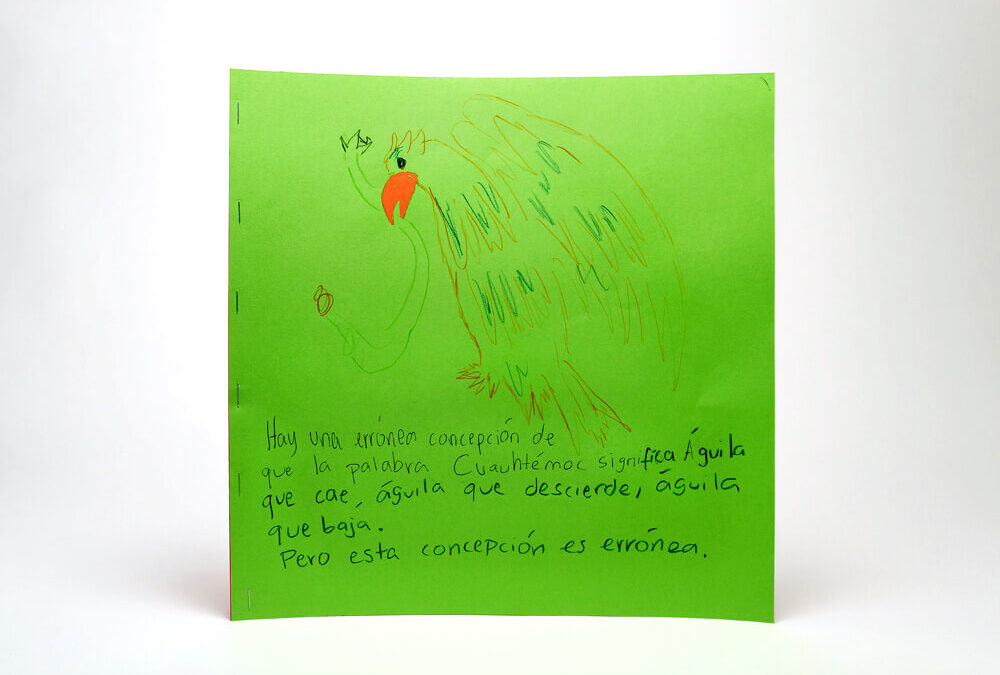 Hay una errónea concepción de
que la palabra Cuauhtémoc significa Águila
que cae, águila que desciende, águila
que baja.
Pero esta concepción es errónea.